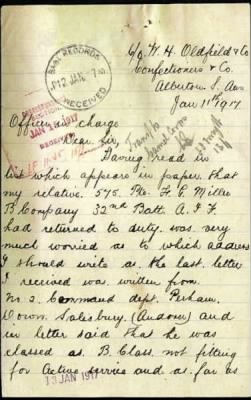 c/o W. H. Oldfield & Co
Confectioners & Co.
Alberton S. Aus
Jan 11th 1917
BASE RECORDS
12 JAN. 1917
RECEIVED
JAN 1917
RECEIVED
Officer in Charge
Dear Sir,
Having read in
list which appears in paper. that
my relative. 575. Pte. F. G. Miller
B Company 32nd Batt. A. I. F
had returned to duty. was very
much worried as to which address
I should write as the last letter
I received was written from
No 3. Command dept. Perham.
Down. Salesbury. (Andover) and
in letter said that he was
classed as B. Class. not fitting
for Active service and as far as
13 JAN 1917